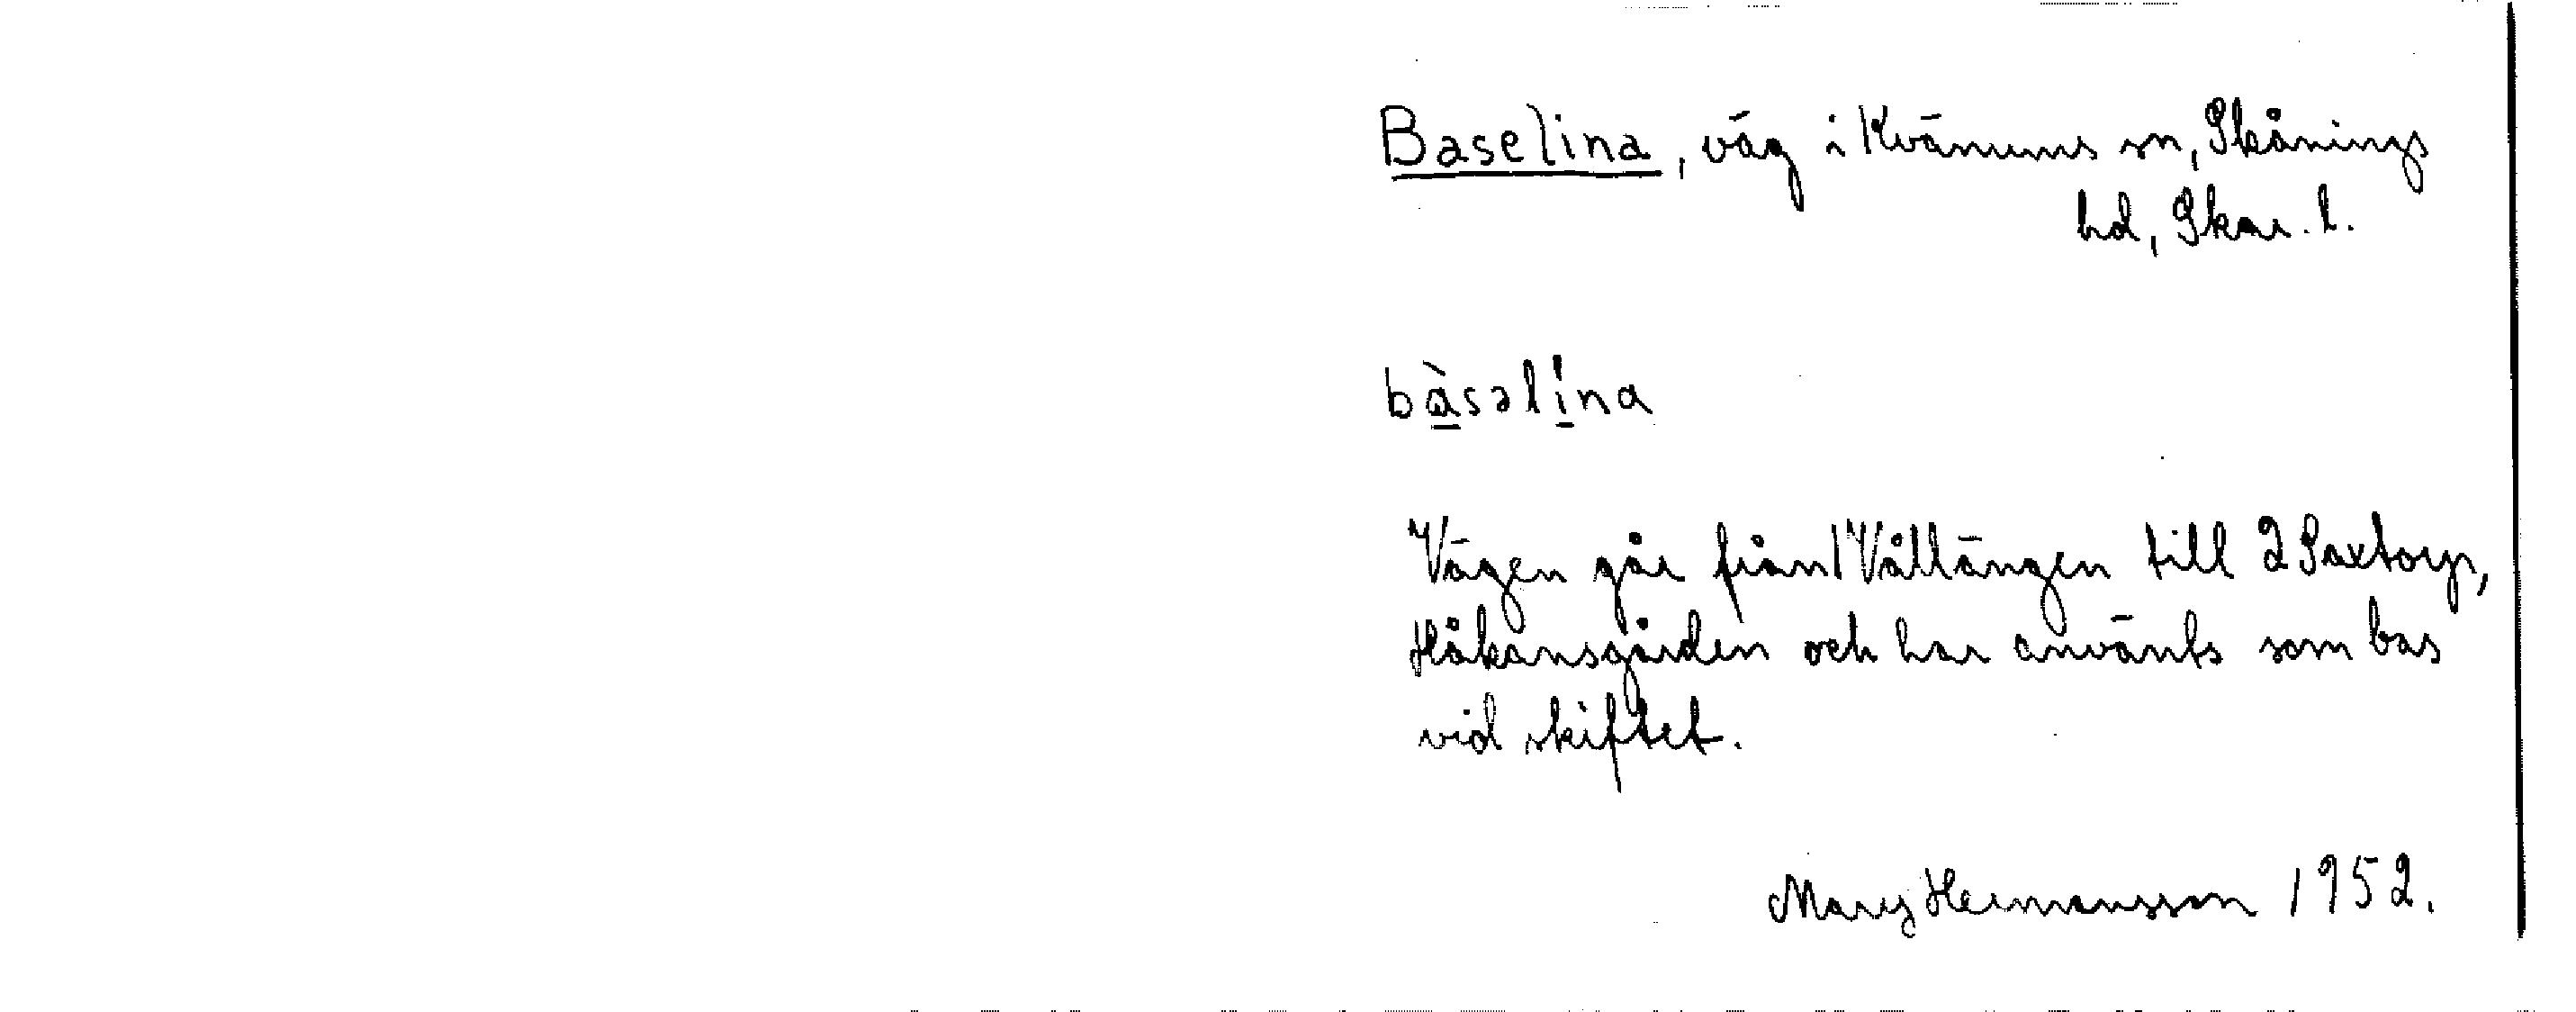 Baselina, väg i Kvänums sn, Skånings
hd, Skar. l.
bàsəlina
Vägen går från 1 Vållängen till 2 Saxtorp,
Håkansgården och har använts som bas
vid skiftet.
Mary Hermansson 1952.